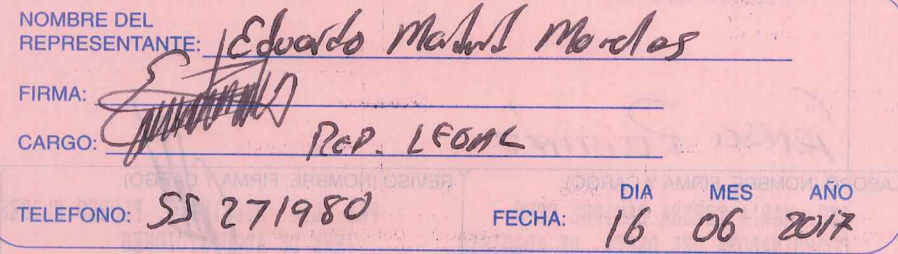 NOMBRE DEL
REPRESENTANTE: Eduardo Madrid Morales
FIRMA:
CARGO: REP. LEGAL
DIA MES AÑO
TELEFONO: 55 271980 FECHA: 16 06 2017